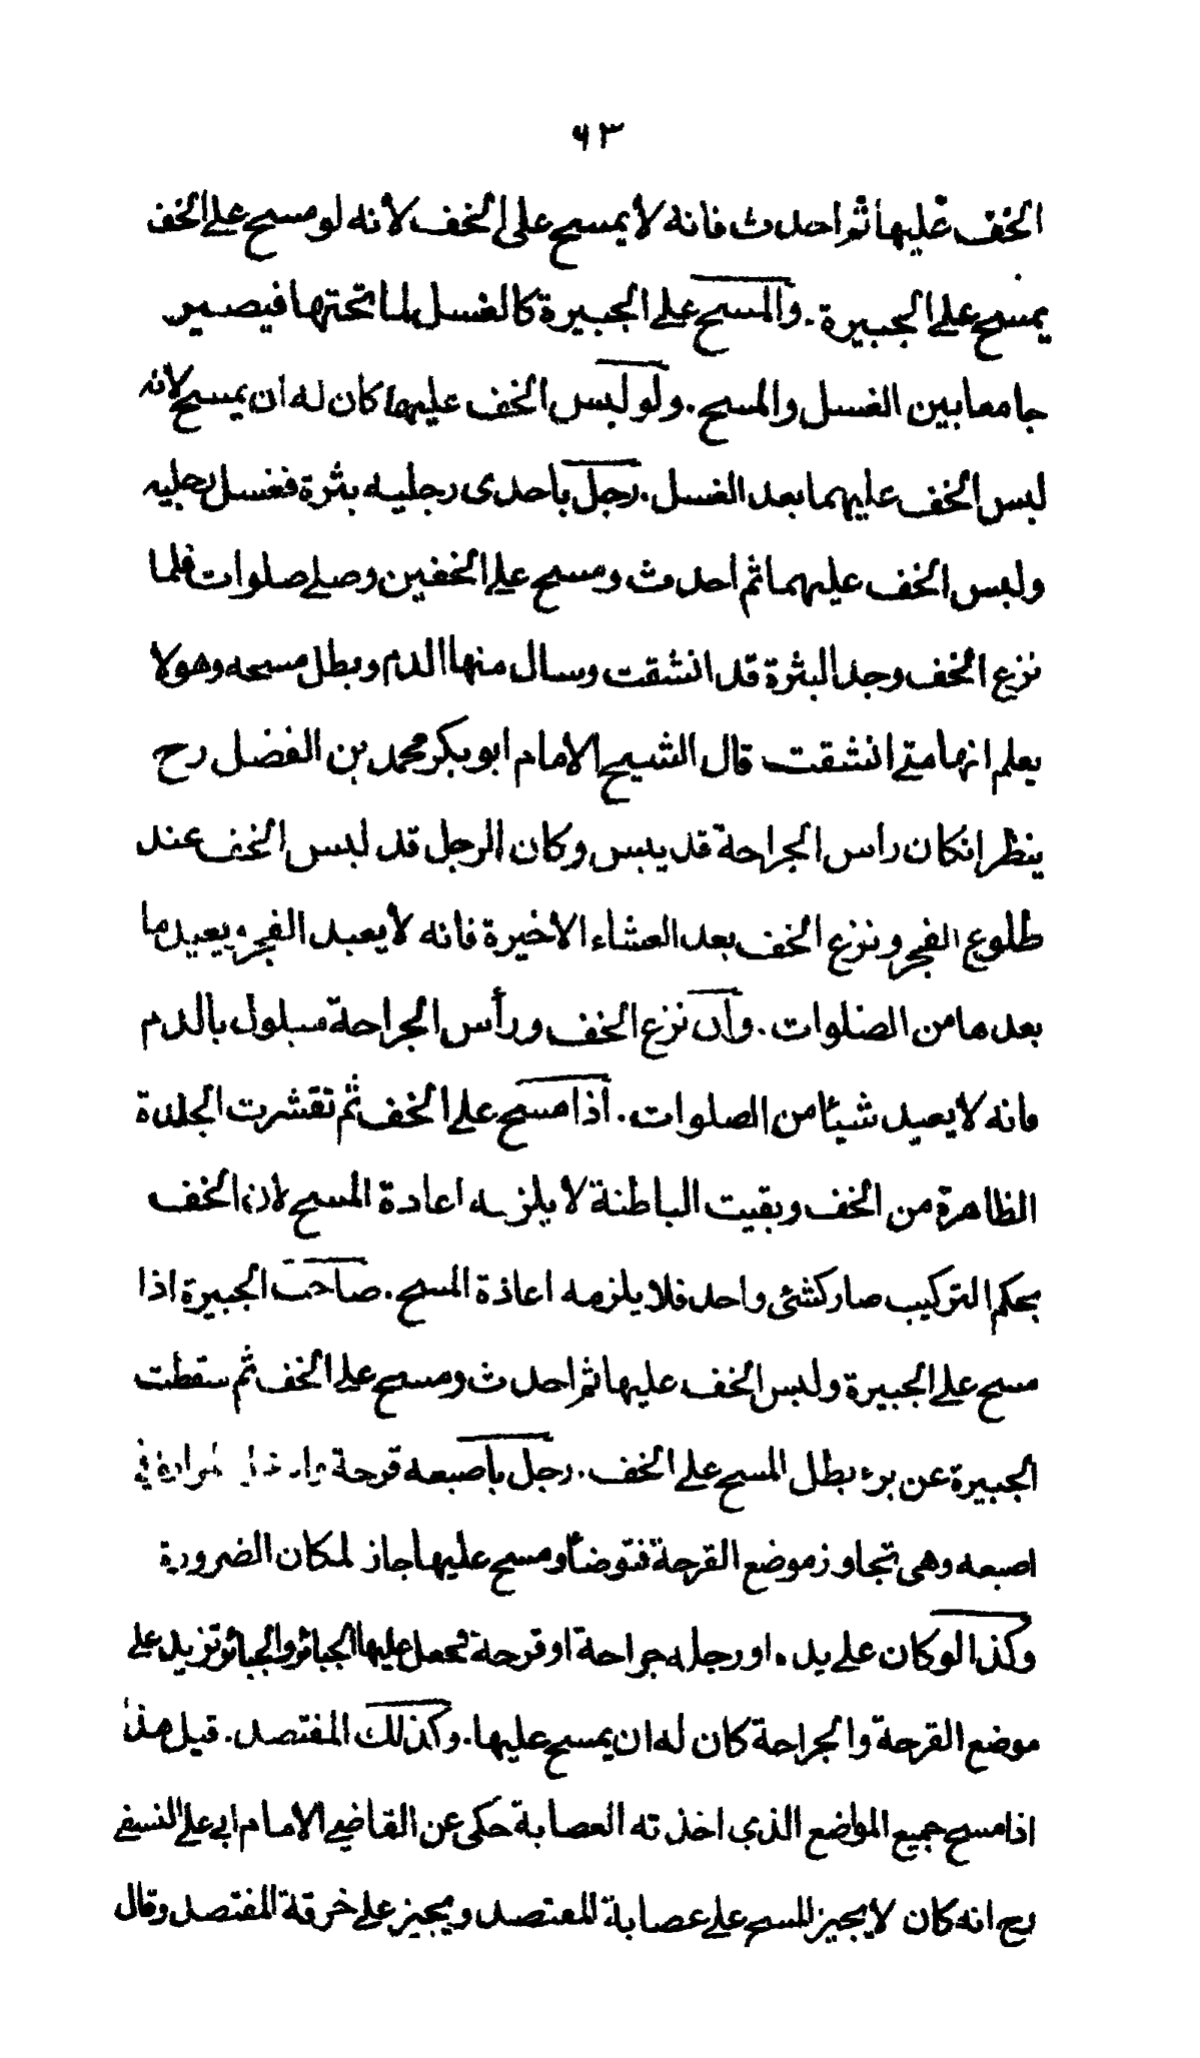 ٦٣
الخف عليها ثم احدث فانه لا يمسح على الخف لأنه لو مسح على الخف
يمسح على الجبيرة. والمسح على الجبيرة كالغسل لما تحتها فيصير
جامعا بين الغسل والمسح. ولو لبس الخف عليها كان له ان يمسح لانه
لبس الخف عليهما بعد الغسل. رجل باحدى رجليه بثرة فغسل رجليه
ولبس الخف عليهما ثم احدث ومسح على الخفين وصلى صلوات فلما
نزع الخف وجد البثرة قد انشقت وسال منها الدم وبطل مسحه وهو لا
يعلم انها متى انشقت قال الشيخ الامام ابو بكر محمد بن الفضل رح
ينظر انكان راس الجراحة قد يبس وكان الرجل قد لبس الخف عند
طلوع الفجر ونزع الخف بعد العشاء الاخيرة فانه لا يعيد الفجر ويعيد ما
بعدها من الصلوات. وان نزع الخف ورأس الجراحة مبلول بالدم
فانه لا يعيد شيئا من الصلوات. اذا مسح على الخف ثم تقشرت الجلدة
الظاهرة من الخف وبقيت الباطنة لا يلزمه اعادة المسح لان الخف
بحكم التركيب صار كشئ واحد فلا يلزمه اعادة المسح. صاحب الجبيرة اذا
مسح على الجبيرة ولبس الخف عليها ثم احدث ومسح على الخف ثم سقطت
الجبيرة عن برء بطل المسح على الخف. رجل بأصبعه قرحة المرارة في
اصبعه وهى تجاوز موضع القرحة فتوضأ ومسح عليها جاز لمكان الضرورة
وكذا لو كان على يده او رجله جراحة او قرحة فجعل عليها الجبائر والجبائر تزيد على
موضع القرحة والجراحة كان له ان يمسح عليها. وكذلك المفتصد. قيل هذا
اذا مسح جميع المواضع الذي اخذته العصابة حكى عن القاضي الامام ابي على النسفي
رح انه كان لا يجيز المسح على عصابة المفتصد ويجيز على خرقة المفتصد وقال